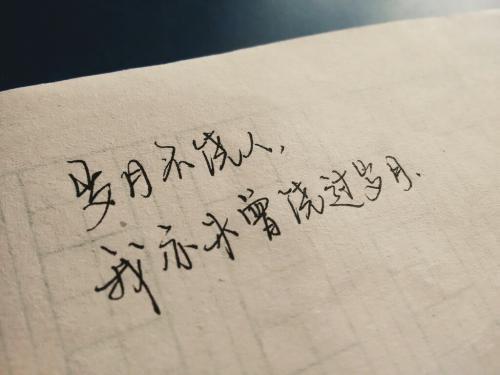 岁月不饶人,
我亦未曾饶过岁月.